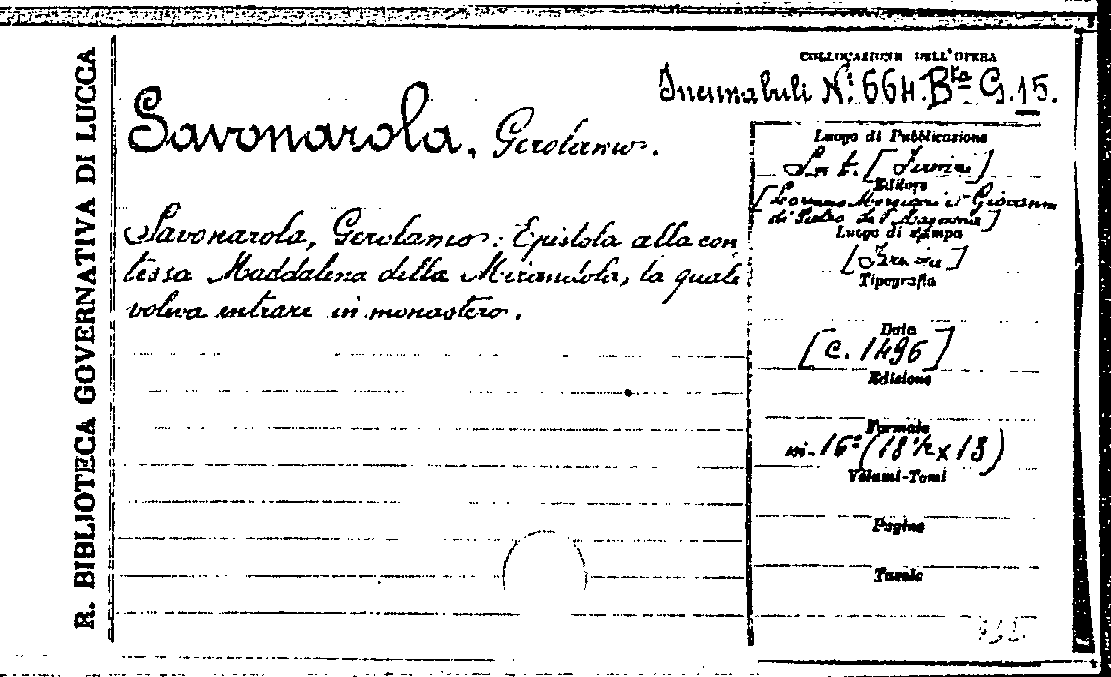 R. BIBLIOTECA GOVERNATIVA DI LUCCA
COLLOCAZIONE DELL'OPERA
Incunabuli N: 664. Bta G. 15.
Savonarola, Gerolamo.
Savonarola, Gerolamo: Epistola alla con
tessa Maddalena della Mirandola, la quale
voleva entrare in monastero.
Luogo di Pubblicazione
Editore
[Lorenzo Morgiani e Giovanni
di Pietro
Luogo di stampa
Tipografia
Data
[c. 1496]
Edizione
Formato
in-16° (18½ x 13)
Volumi-Tomi
Pagine
Tavole